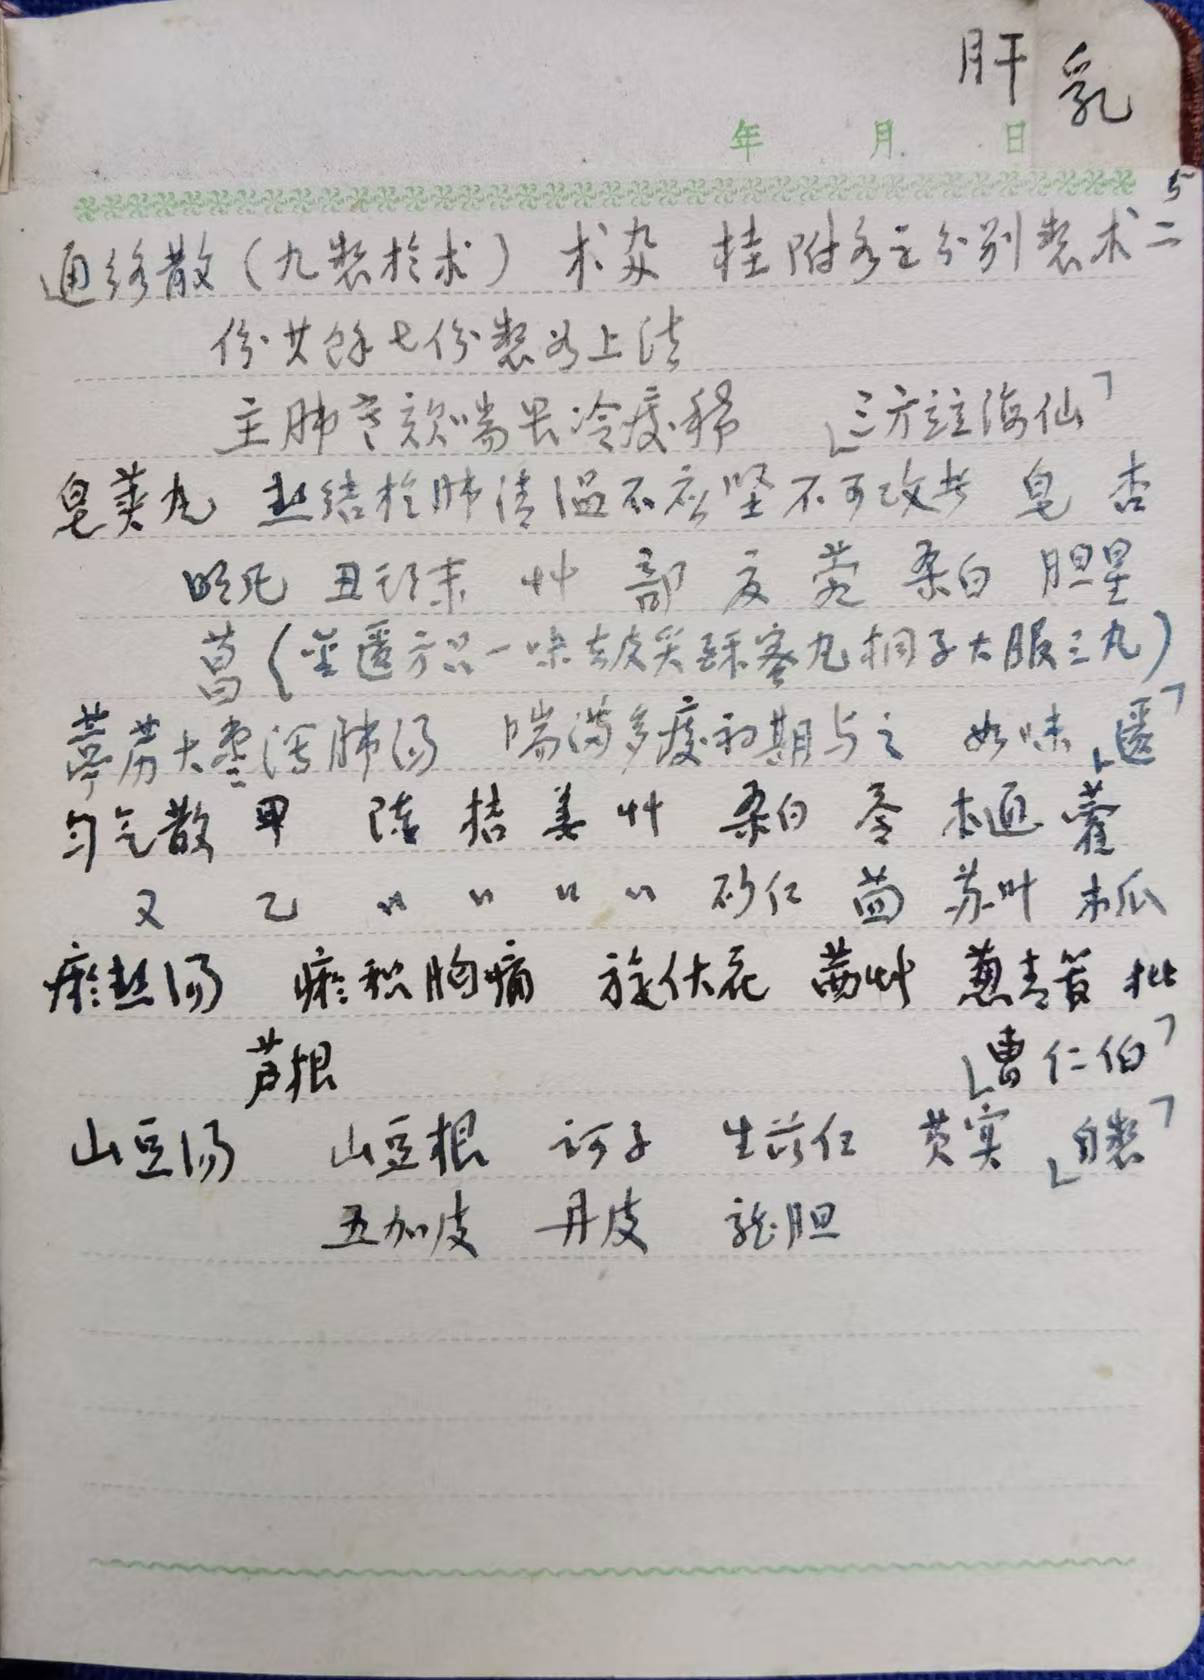 肝 乳
年 月 日
5
通络散（九製於术） 术 桂附各 分别製术二
份其余七份製如上法
主肺寒颏喘畏冷痰稀 「三方注海仙」
皂荚丸 热结于肺清温不应坚不可攻者 皂 杏
明凡 丑头末 艸 部 桑白 胆星
菖（金匮方只一味去皮炙 蜜丸桐子大服三丸）
葶苈大枣泻肺汤 喘满多痰初期与之 如味 「匮」
匀气散 甲 陈 桔 姜 艸 桑白 苓 木通 藿
又 乙 〃 〃 〃 〃 砂仁 茴 苏叶 木瓜
瘀热汤 瘀积胸痛 旋伏花 茜艸 葱青管 枇
芦根 「曹仁伯」
山豆汤 山豆根 诃子 生苡仁 芡实 「自製」
五加皮 丹皮 龙胆